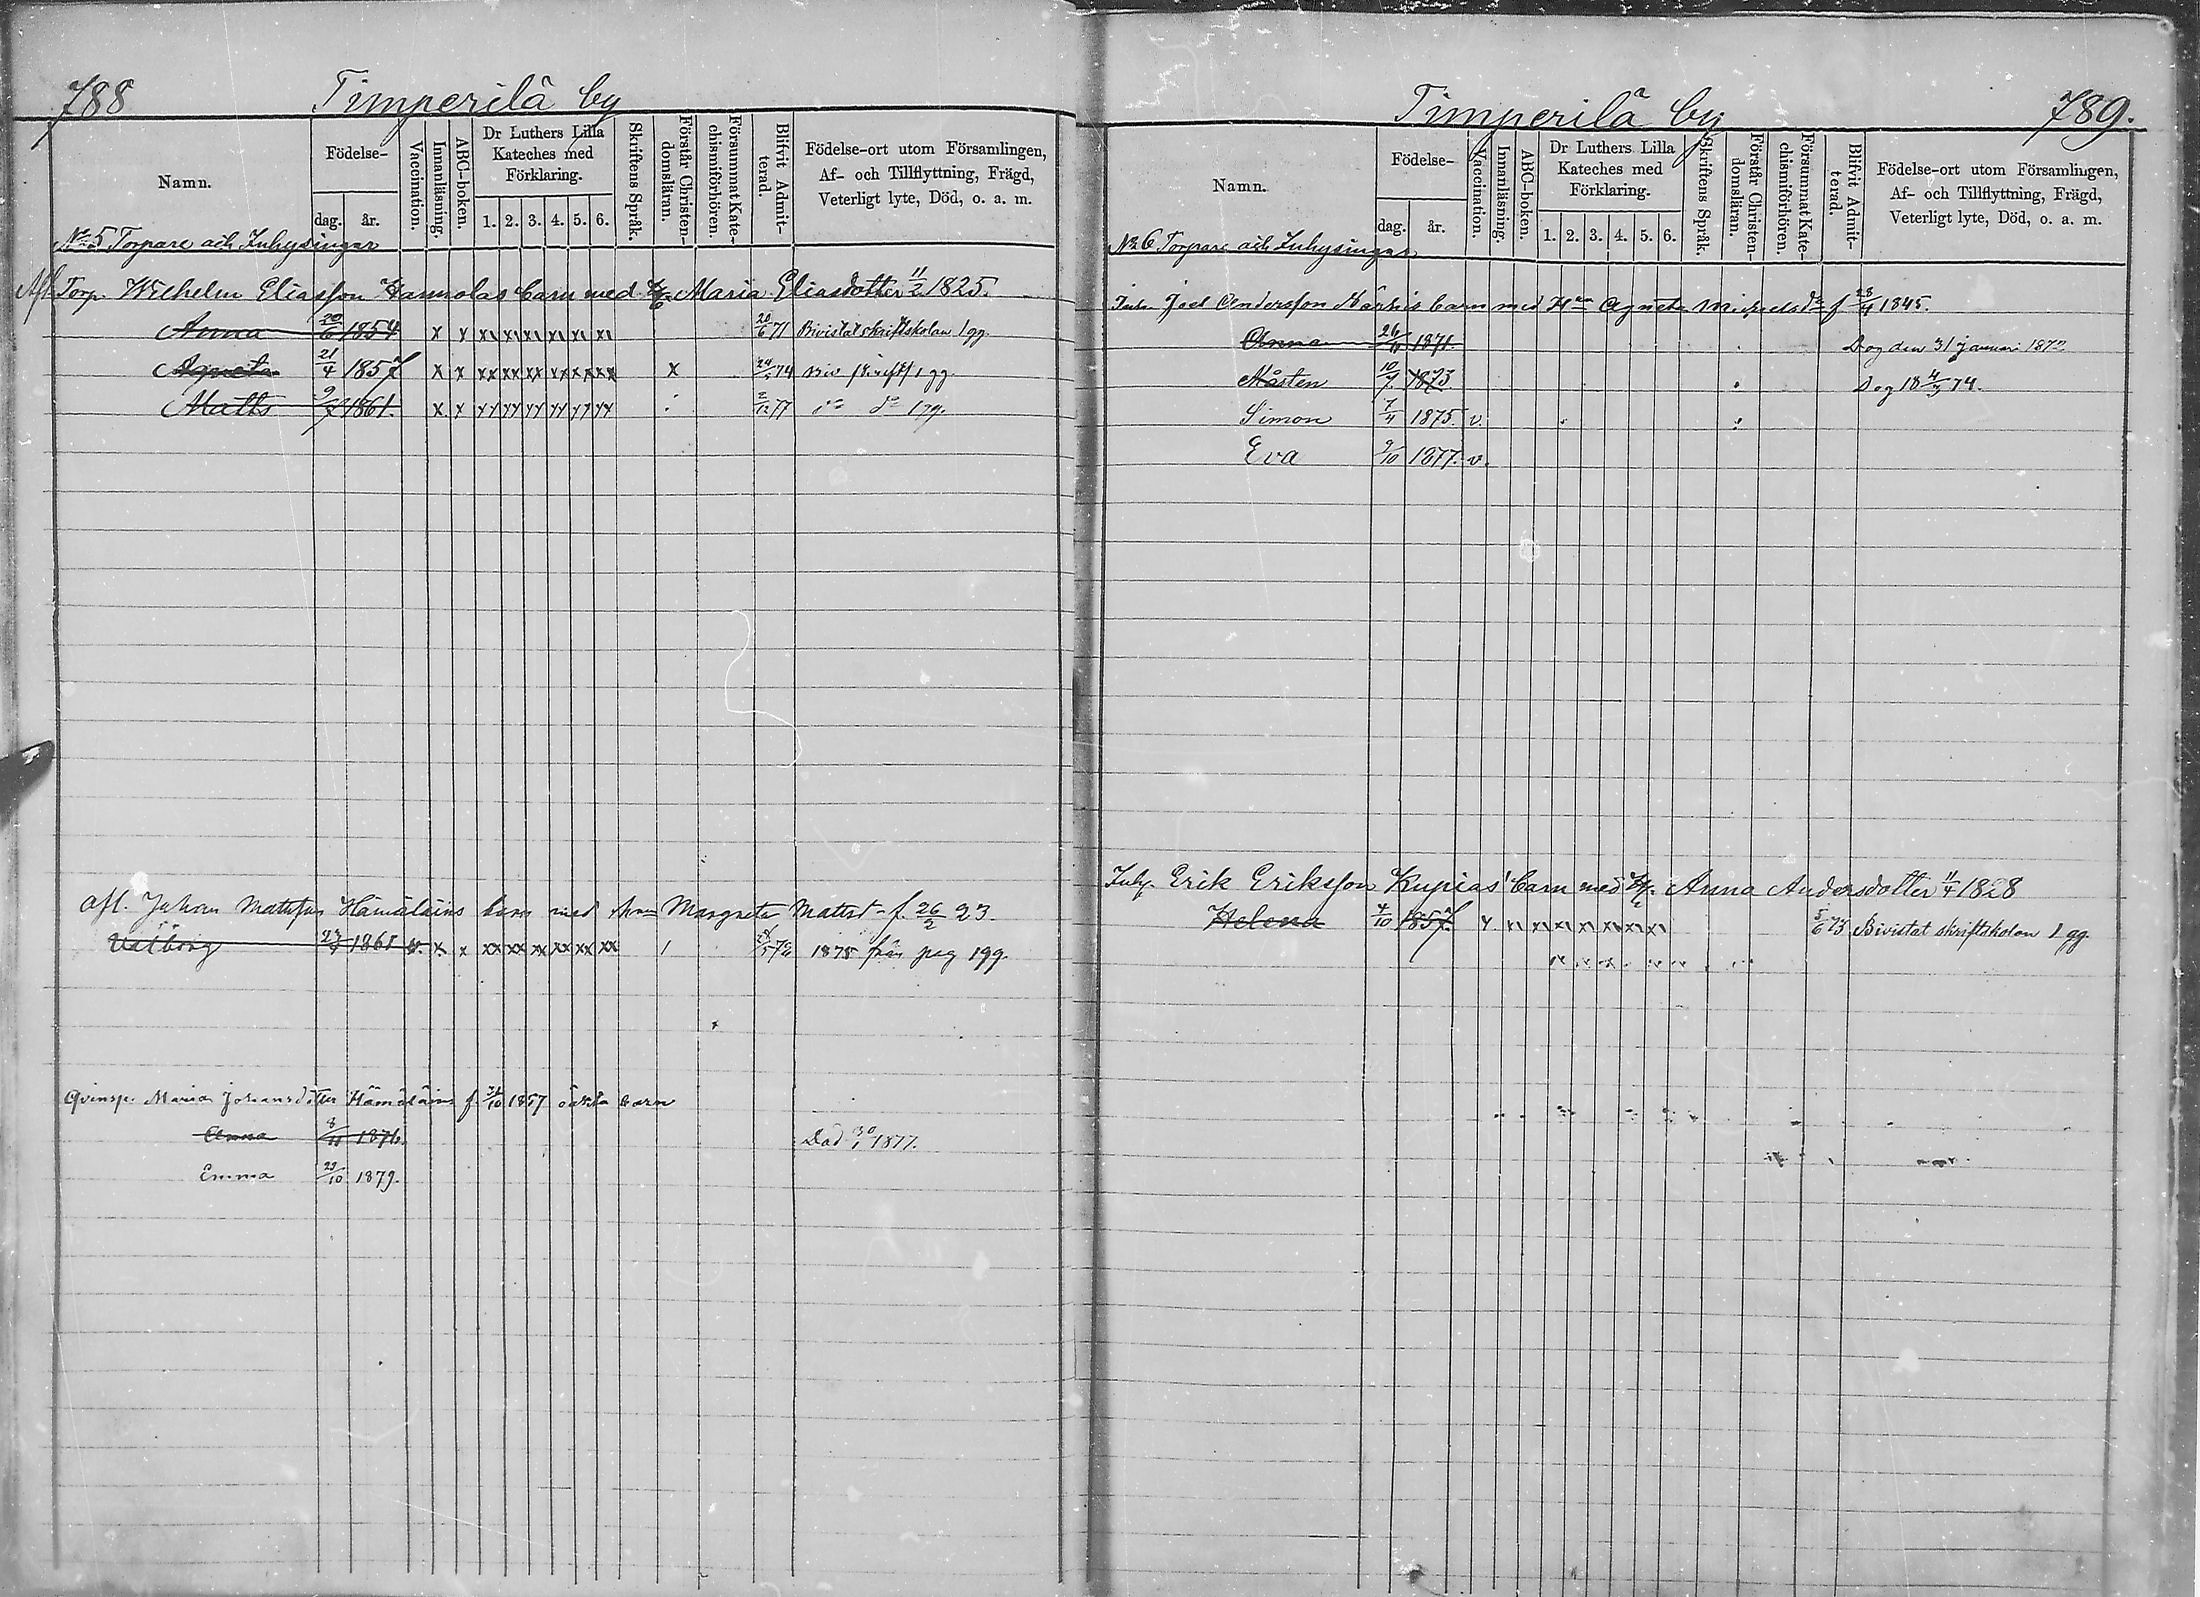 788 Timperilä by
Namn. Födelse- dag. år. Vaccination. Innanläsning. ABC-boken. Dr Luthers Lilla Kateches med Förklaring. 1. 2. 3. 4. 5. 6. Skriftens Språk. Förstår Christendomsläran. Försummat Katechismiförhören. Blifvit Admitterad. Födelse-ort utom Församlingen, Af- och Tillflyttning, Frägd, Veterligt lyte, Död, o. a. m.
No 5 Torpare och Inhysingar
Afl. Torp. Wilhelm Eliasson Hannolas barn med Maria Eliasdotter 11/2 1825.
Anna 20/6 1854 x x xx xx xx xx xx xx 20/6 71 Bivistat skriftskolan 1 gg.
Agneta 21/4 1857 x x xx xx xx xx xx xx x 24/5 74 Biv skrift 1 gg.
Matts 9/7 1861. x x xx xx xx xx xx xx 2/12 77 do do 1 gg.
Afl. Johan Mattsson Hämäläins barn med Margreta Mattsd. f. 26/2 23.
Valborg 1861 v. x x xx xx xx xx xx xx 1 1875 från pag 199.
Qvinsp. Maria Johansdotter Hämäläins f. 1857 oäkta barn
Anna 8/11 1876. Död 30/1 1877.
Emma 29/10 1879.
Timperilä by 789.
Namn. Födelse- dag. år. Vaccination. Innanläsning. ABC-boken. Dr Luthers Lilla Kateches med Förklaring. 1. 2. 3. 4. 5. 6. Skriftens Språk. Förstår Christendomsläran. Försummat Katechismiförhören. Blifvit Admitterad. Födelse-ort utom Församlingen, Af- och Tillflyttning, Frägd, Veterligt lyte, Död, o. a. m.
No 6 Torpare och Inhysingar
Inh. Joel Andersson Kärkis barn med Hun Agneta Michelsdr f 28/4 1845.
Anna 26/11 1871. Dog den 31 januari
Mårten 10/9 1873 Dog 18 4/3 74.
Simon 7/4 1875. v.
Eva 9/10 1877. v.
Inhy. Erik Eriksson Kupias barn med Anna Andersdotter 11/4 1828
Helena 4/10 1857. x x x xx xx xx xx xx 5/6 73 Bivistat skriftskolan 1 gg.